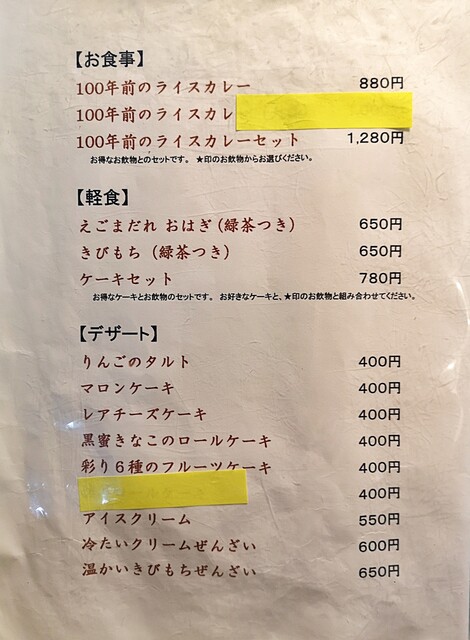 【お食事】
100年前のライスカレー 880円
100年前のライスカレ
100年前のライスカレーセット 1,280円
お得なお飲物とのセットです。 ★印のお飲物からお選びください。
【軽食】
えごまだれ おはぎ(緑茶つき) 650円
きびもち (緑茶つき) 650円
ケーキセット 780円
お得なケーキとお飲物のセットです。 お好きなケーキと、★印のお飲物と組み合わせてください。
【デザート】
りんごのタルト 400円
マロンケーキ 400円
レアチーズケーキ 400円
黒蜜きなこのロールケーキ 400円
彩り6種のフルーツケーキ 400円
400円
アイスクリーム 550円
冷たいクリームぜんざい 600円
温かいきびもちぜんざい 650円